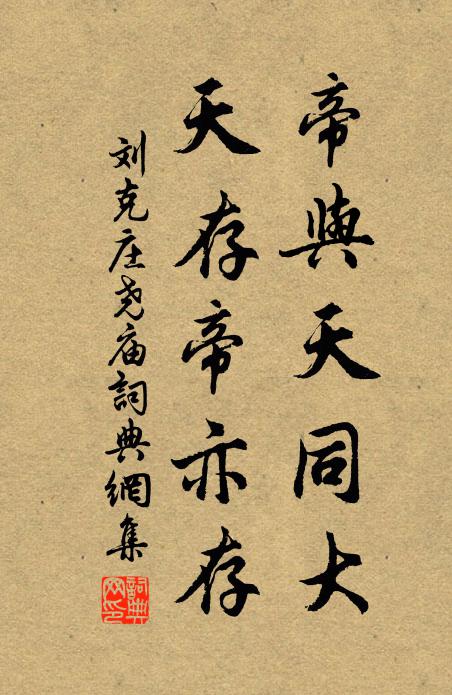 帝與天同大
天存帝亦存
刘克庄尧庙詞典網集
詞典網印